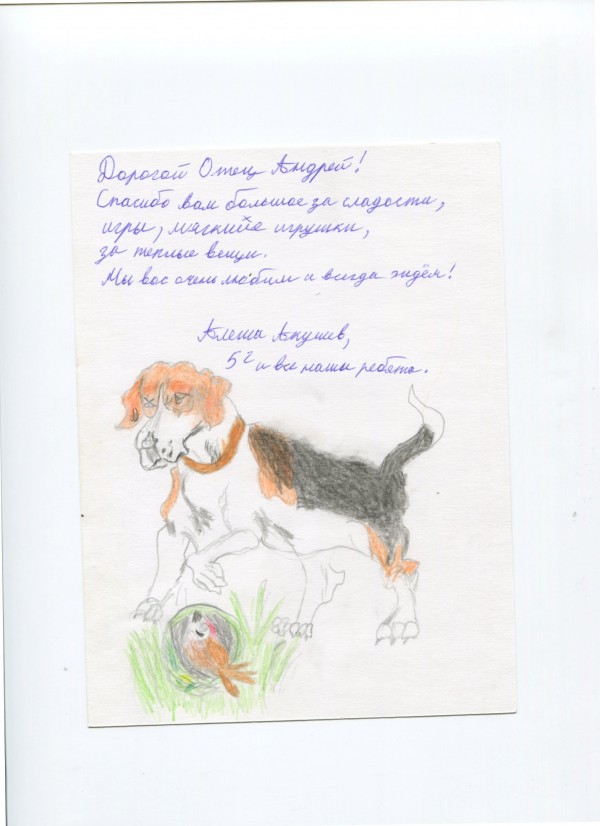 Дорогой Отец Андрей!
Спасибо вам большое за сладости,
игры, мягкийе игрушки,
за теплые вещи.
Мы вас очень любим и всегда ждём!
Алеша Апушев,
5г и все нашы ребята.